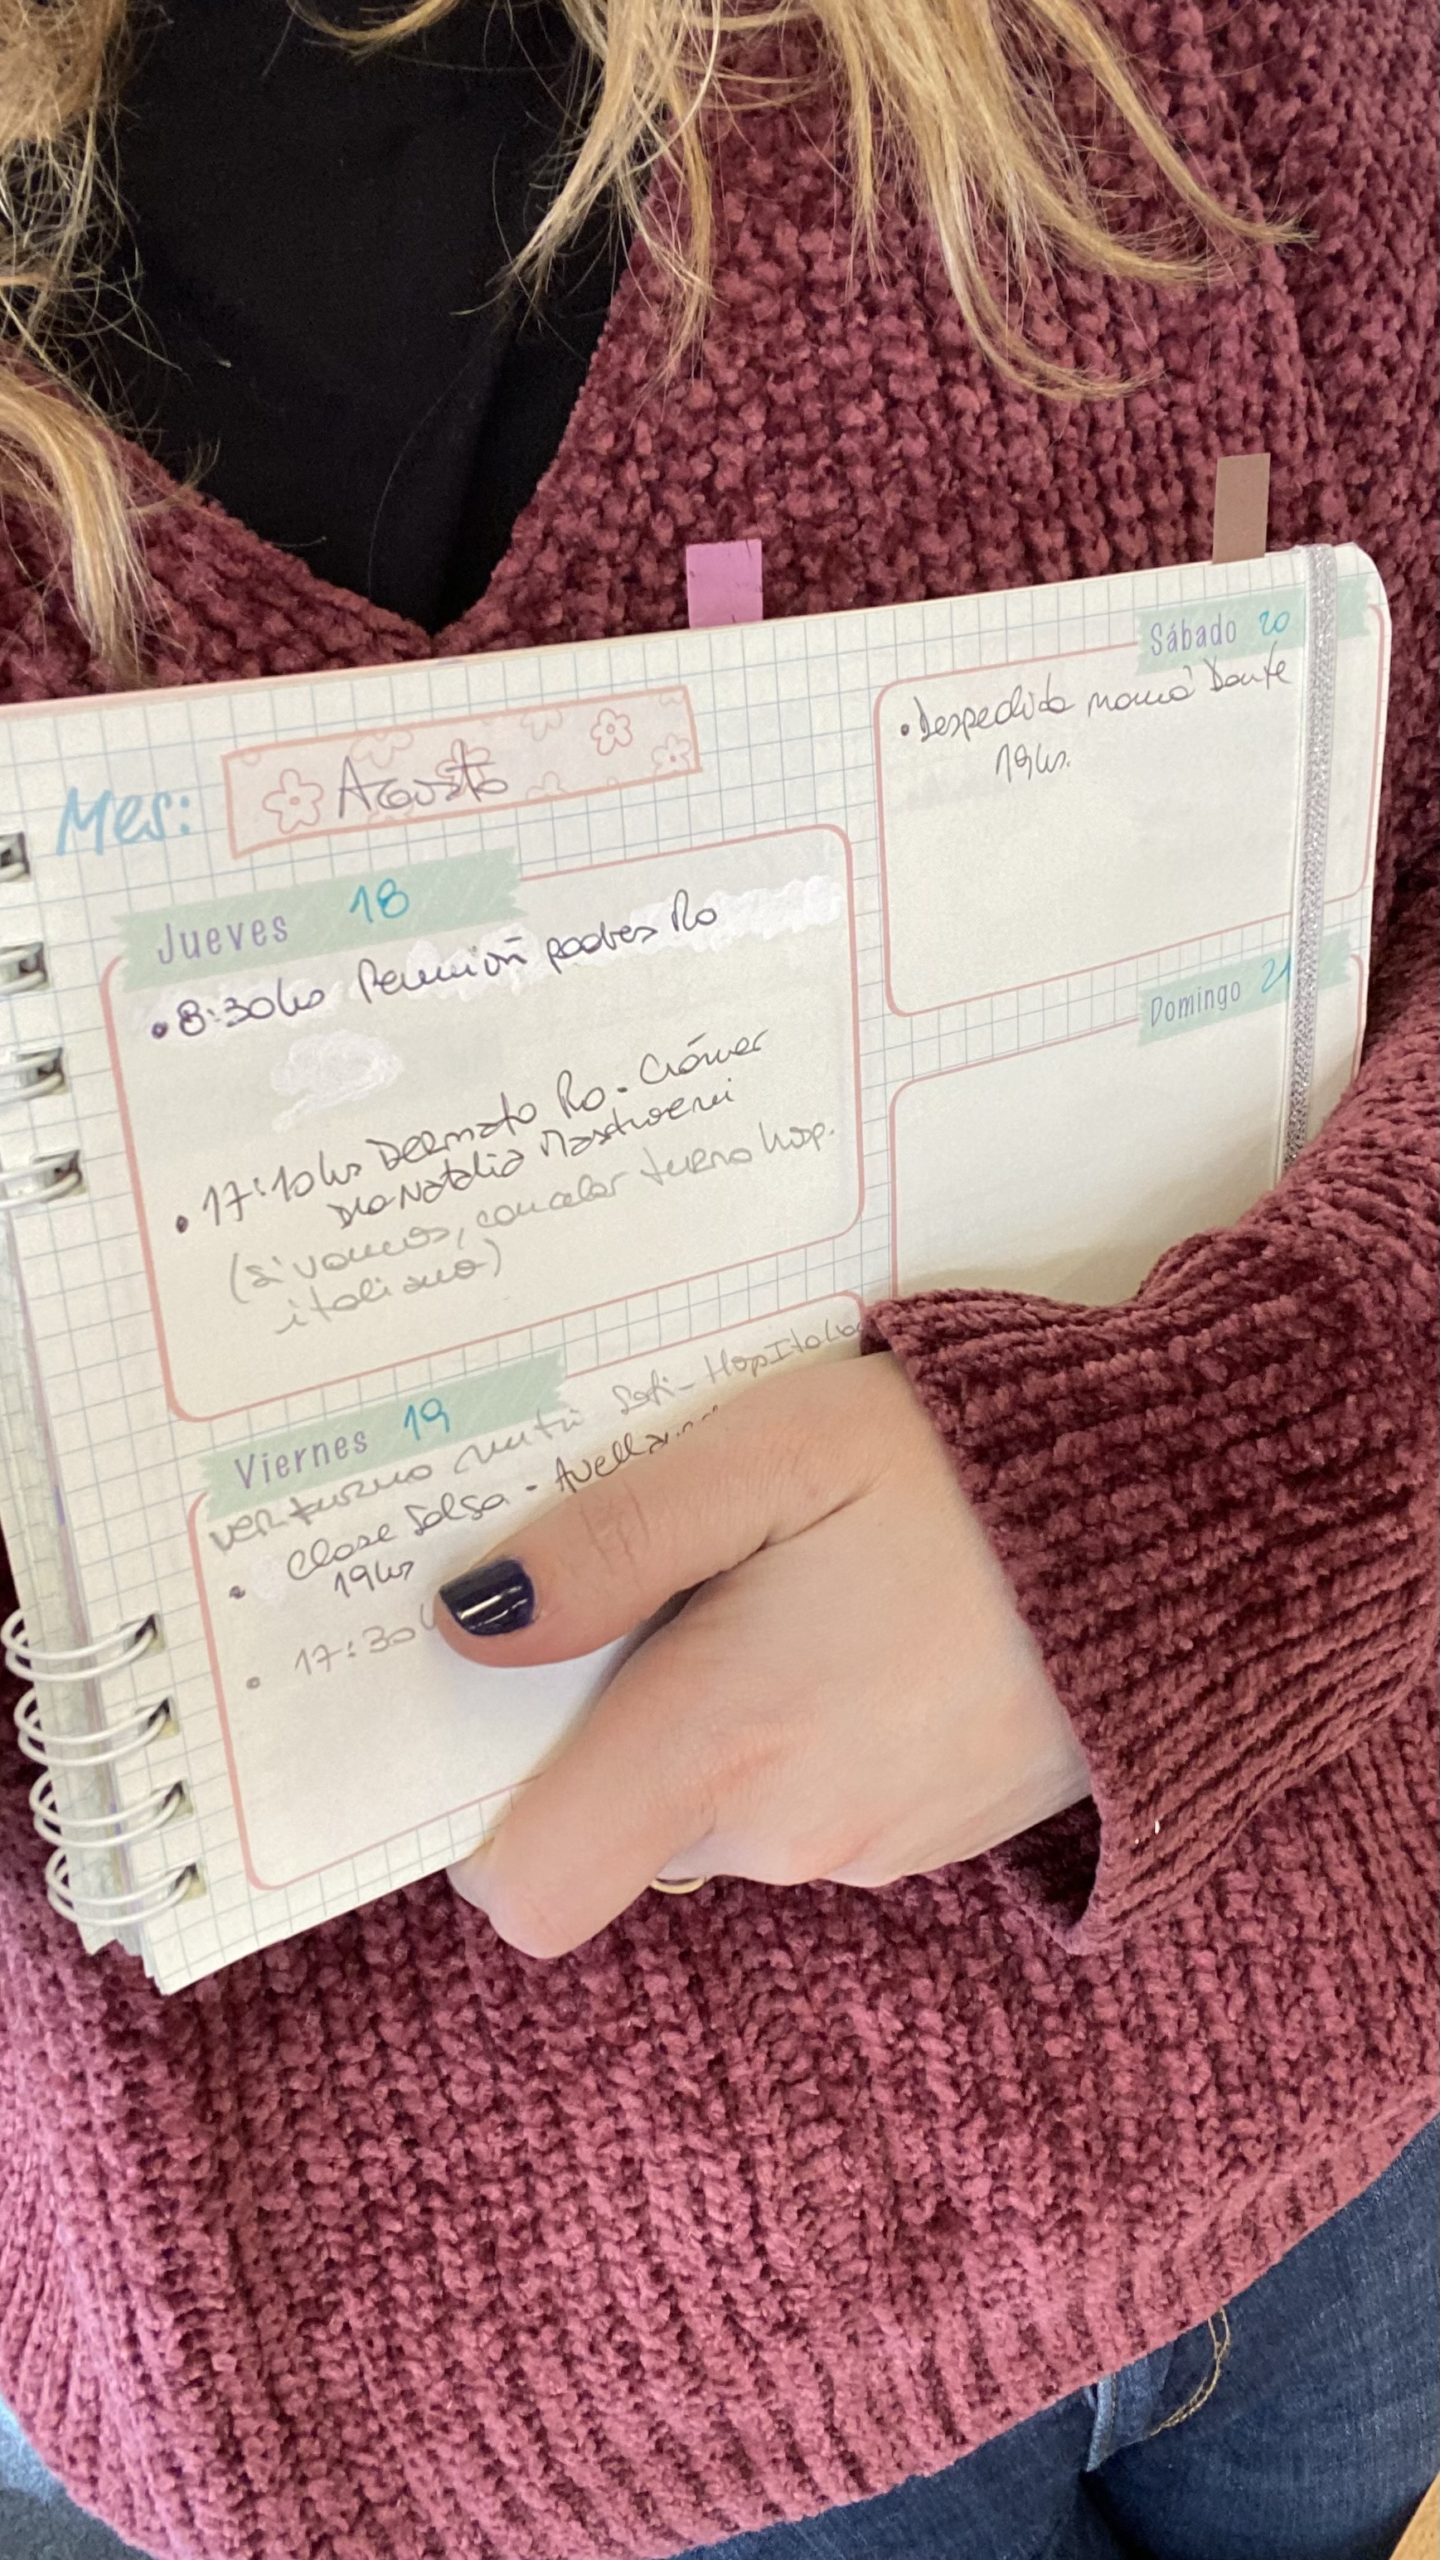 Mes: Agosto
Jueves 18
• 8:30hs Reunión padres Ro
• 17:10hs Dermato Ro - Crámer
Dra Natalia Mastroeni
(si vamos, cancelar turno hosp.
italiano)
Viernes 19
ver turno nutri Sofi - Hosp Italia
• Clase Salsa - Avellan
19hs
• 17:30
Sábado 20
• Despedida mamá Dante
19hs.
Domingo 21